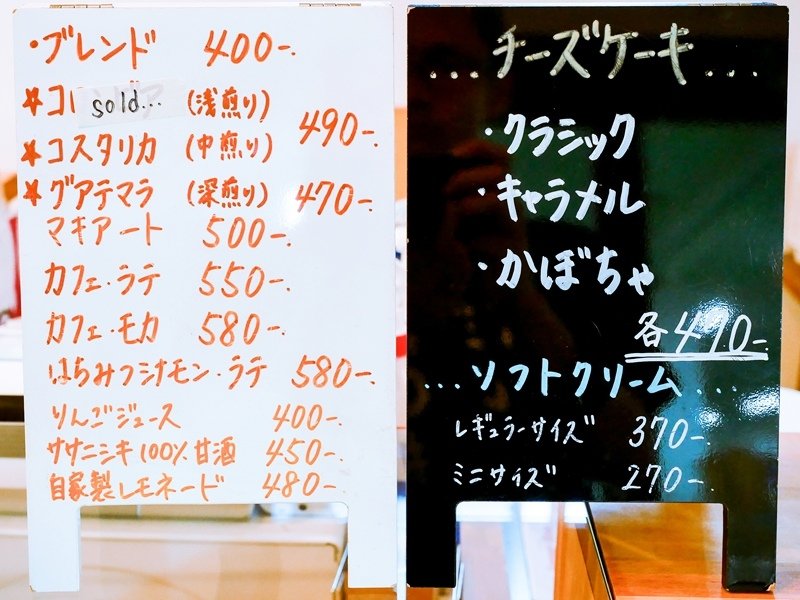 ・ブレンド 400-.
☆コ sold... (浅煎り)
☆コスタリカ (中煎り) 490-.
☆グアテマラ (深煎り) 470-.
マキアート 500-.
カフェ・ラテ 550-.
カフェ・モカ 580-.
はちみつシナモン・ラテ 580-.
りんごジュース 400-.
ササニシキ100%甘酒 450-.
自家製レモネード 480-.
...チーズケーキ...
・クラシック
・キャラメル
・かぼちゃ
各490-
...ソフトクリーム...
レギュラーサイズ 370-.
ミニサイズ 270-.